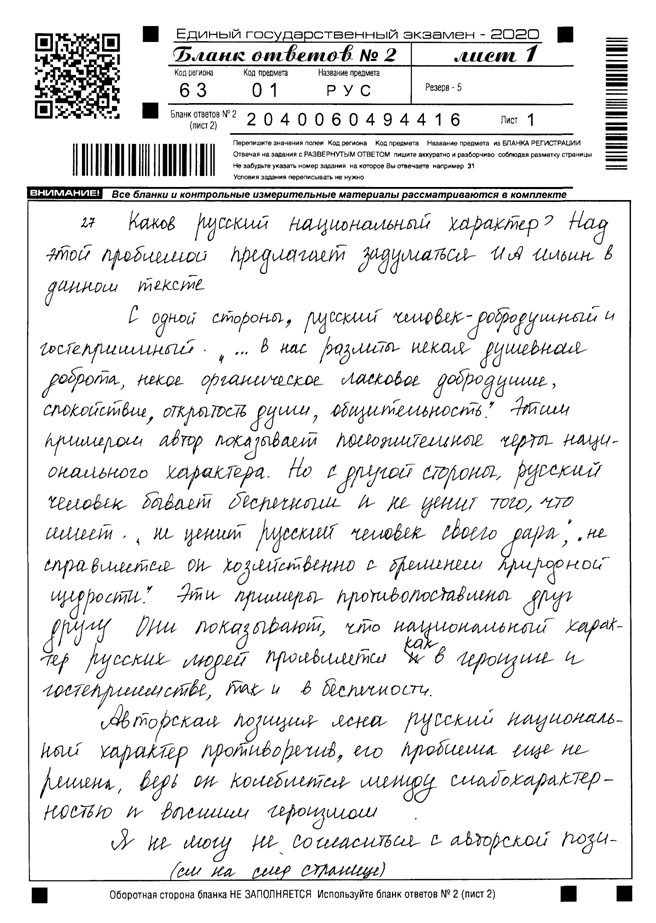 Единый государственный экзамен - 2020
Бланк ответов № 2 лист 1
Код региона Код предмета Название предмета
63 01 РУС Резерв - 5
Бланк ответов № 2 (лист 2) 2040060494416 Лист 1
Перепишите значения полей Код региона Код предмета Название предмета из БЛАНКА РЕГИСТРАЦИИ
Отвечая на задания с РАЗВЕРНУТЫМ ОТВЕТОМ пишите аккуратно и разборчиво соблюдая разметку страницы
Не забудьте указать номер задания на которое Вы отвечаете например 31
Условия задания переписывать не нужно
ВНИМАНИЕ! Все бланки и контрольные измерительные материалы рассматриваются в комплекте
27 Каков русский национальный характер? Над
этой проблемой предлагает задуматься И А Ильин в
данном тексте
С одной стороны, русский человек-добродушный и
гостеприимный. „... в нас разлиты некая душевная
доброта, некое органическое ласковое добродушие,
спокойствие, открытость души, общительность." Этим
примером автор показывает положительные черты наци-
онального характера. Но с другой стороны, русский
человек бывает беспечным и не ценит того, что
имеет. „не ценит русский человек своего дара", „не
справляется он хозяйственно с бременем природной
щедрости." Эти примеры противопоставлены друг
другу Они показывают, что национальный харак-
тер русских людей проявляется как в героизме и
гостеприимстве, так и в беспечности.
Авторская позиция ясна русский националь-
ный характер противоречив, его проблема еще не
решена, ведь он колеблется между слабохарактер-
ностью и высшим героизмом
Я не могу не согласиться с авторской пози-
(см на след странице)
Оборотная сторона бланка НЕ ЗАПОЛНЯЕТСЯ Используйте бланк ответов № 2 (лист 2)